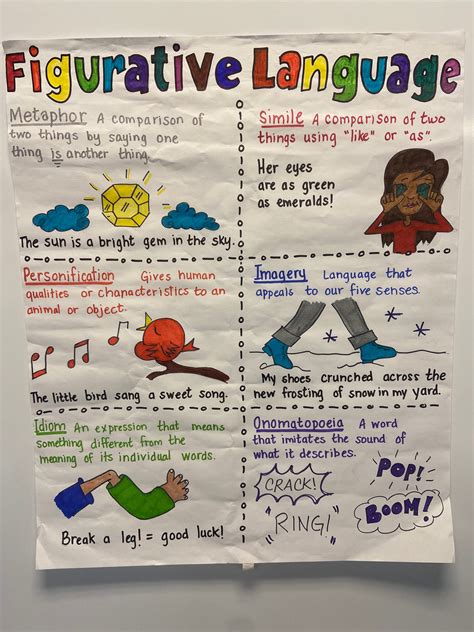 Figurative Language
Metaphor A comparison of
two things by saying one
thing is another thing.
The sun is a bright gem in the sky.
Simile A comparison of two
things using "like" or "as".
Her eyes
are as green
as emeralds!
Personification Gives human
qualities or characteristics to an
animal or object.
The little bird sang a sweet song.
Imagery Language that
appeals to our five senses.
My shoes crunched across the
new frosting of snow in my yard.
Idiom An expression that means
something different from the
meaning of its individual words.
Break a leg! = good luck!
Onomatopoeia A word
that imitates the sound of
what it describes.
CRACK!
POP!
RING!
BOOM!